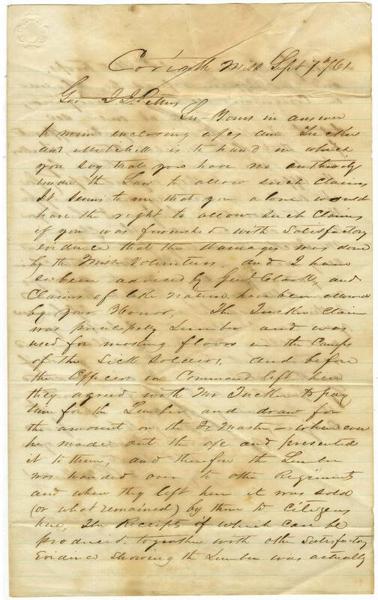 Corinth Miss Sept 7th /61
Gov J J Pettus
Sir Yours in answer
to mine enclosing a/cs Tucker
and Mitchell is to hand in which
you say that you have no authority
under the Law to allow such claims
It seems to me that you alone would
have the right to allow such claims
if you was furnished with Satisfactory
evidence that the damages was done
by the Miss Volunteers and I have
so been advised by Genl Clark, and
Claims of like nature has been allowed
by your Honor, The Tucker Claim
was principally Lumber and was
used for making floors in the Camps
of the Sick Soldiers, and before
the Officers in Command left here
they agreed with Mr Tucker to pay
him for the Lumber and draw for
the amount on the Qr Master when ever
he made out the a/c and presented
it to them, and therefor the Lumber
was handed over to other Regiments
and when they left here it was sold
(or what remained) by them to Citizens
here, The Receipts of which can be
produced together with other Satisfactory
Evidence showing the Lumber was actually